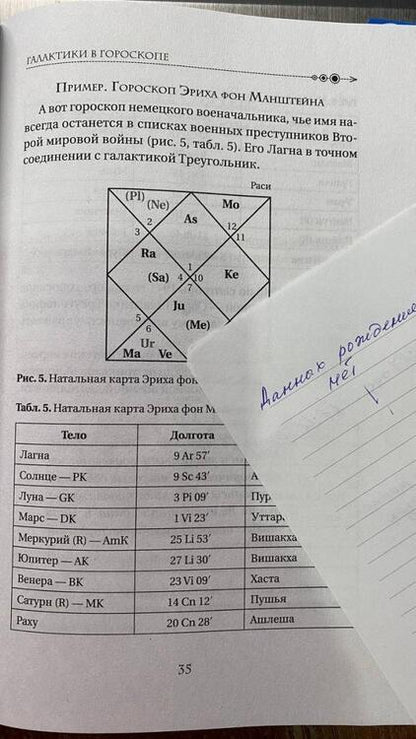 ГАЛАКТИКИ В ГОРОСКОПЕ
Пример. Гороскоп Эриха фон Манштейна
А вот гороскоп немецкого военачальника, чье имя на-
всегда останется в списках военных преступников Вто-
рой мировой войны (рис. 5, табл. 5). Его Лагна в точном
соединении с галактикой Треугольник.
Раси
(Pl)
(Ne)
As
Mo
2
3
12
11
Ra
(Sa)
1
4 10
7
Ke
Ju
(Me)
5
6
Ur
Ma Ve
Рис. 5. Натальная карта Эриха фон
Табл. 5. Натальная карта Эриха фон М
Тело Долгота
Лагна 9 Ar 57′
Солнце — РК 9 Sc 43′ А
Луна — GK 3 Pi 09′ Пур
Марс — DK 1 Vi 23′ Уттара
Меркурий (R) — AmK 25 Li 53′ Вишакха
Юпитер — АК 27 Li 30′ Вишакха
Венера — ВК 23 Vi 09′ Хаста
Сатурн (R) — МК 14 Cn 12′ Пушья
Раху 20 Cn 28′ Ашлеша
35
Данных рождения
нет